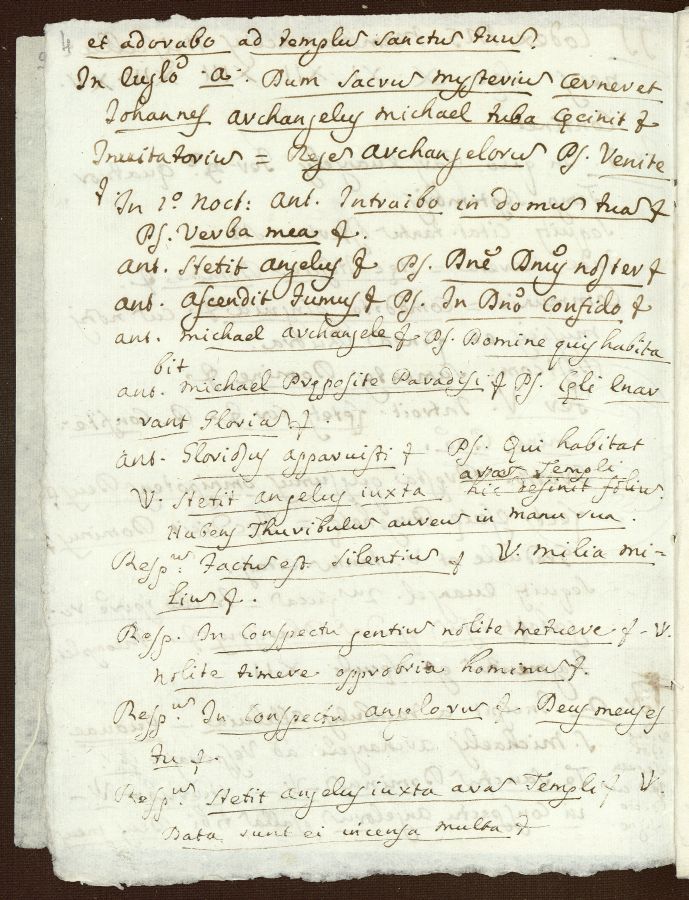 4
et adorabo ad templũ sanctũ tuũ.
In euglõ a. Dum sacrũ mysteriũ cerneret
Iohannes archangelus michael tuba cęcinit &
Inuitatoriũ = Regẽ archangelorũ Ps. Venite
& In 1º noct: ant. Introibo in domũ tuã &
Ps. Verba mea &.
ant. Stetit angelus & Ps. Dñe Dñus noster &
ant. ascendit fumus & Ps. In Dño confido &
ant. michael archangele & Ps. Domine quis habita
bit
ant. michael Pręposite Paradisi & Ps. Cęli enar
rant gloriã &.
ant. Gloriosus apparuisti & Ps. Qui habitat
V. Stetit angelus iuxta arã Templi
hic desinit foliũ.
Habens Thuribulũ aureũ in manu sua.
Respus. Factũ est silentiũ & V. milia mi-
liũ &.
Resp. In conspectu gentiũ nolite metuere & - V.
nolite timere opprobria hominũ &.
Respus. In conspectu angelorũ & Deus meus es
tu &.
Respus. Stetit angelus iuxta arã Templi & V.
Data sunt ei incensa multa &